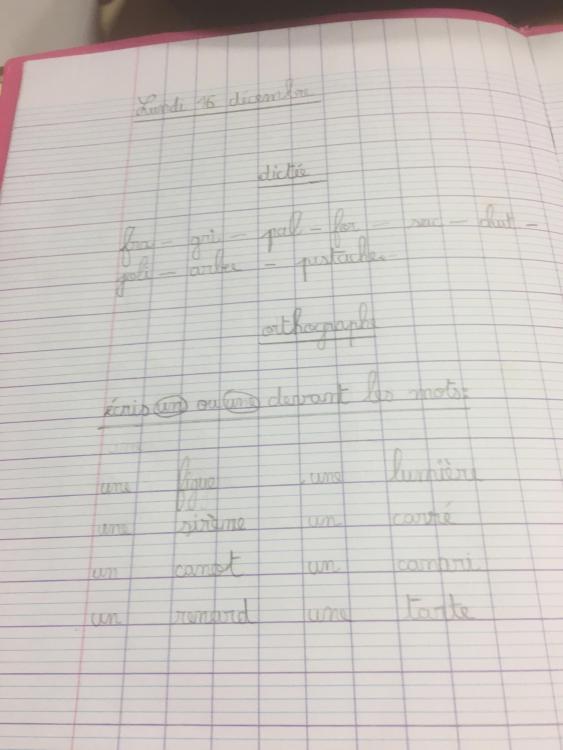 Lundi 16 décembre
dictée
fra - gri - pal - for - sac - chut -
joli - arbre - pistache
orthographe
écris un ou une devant les mots:
une figue une lumière
une sirène un carré
un canot un canari
un renard une tarte